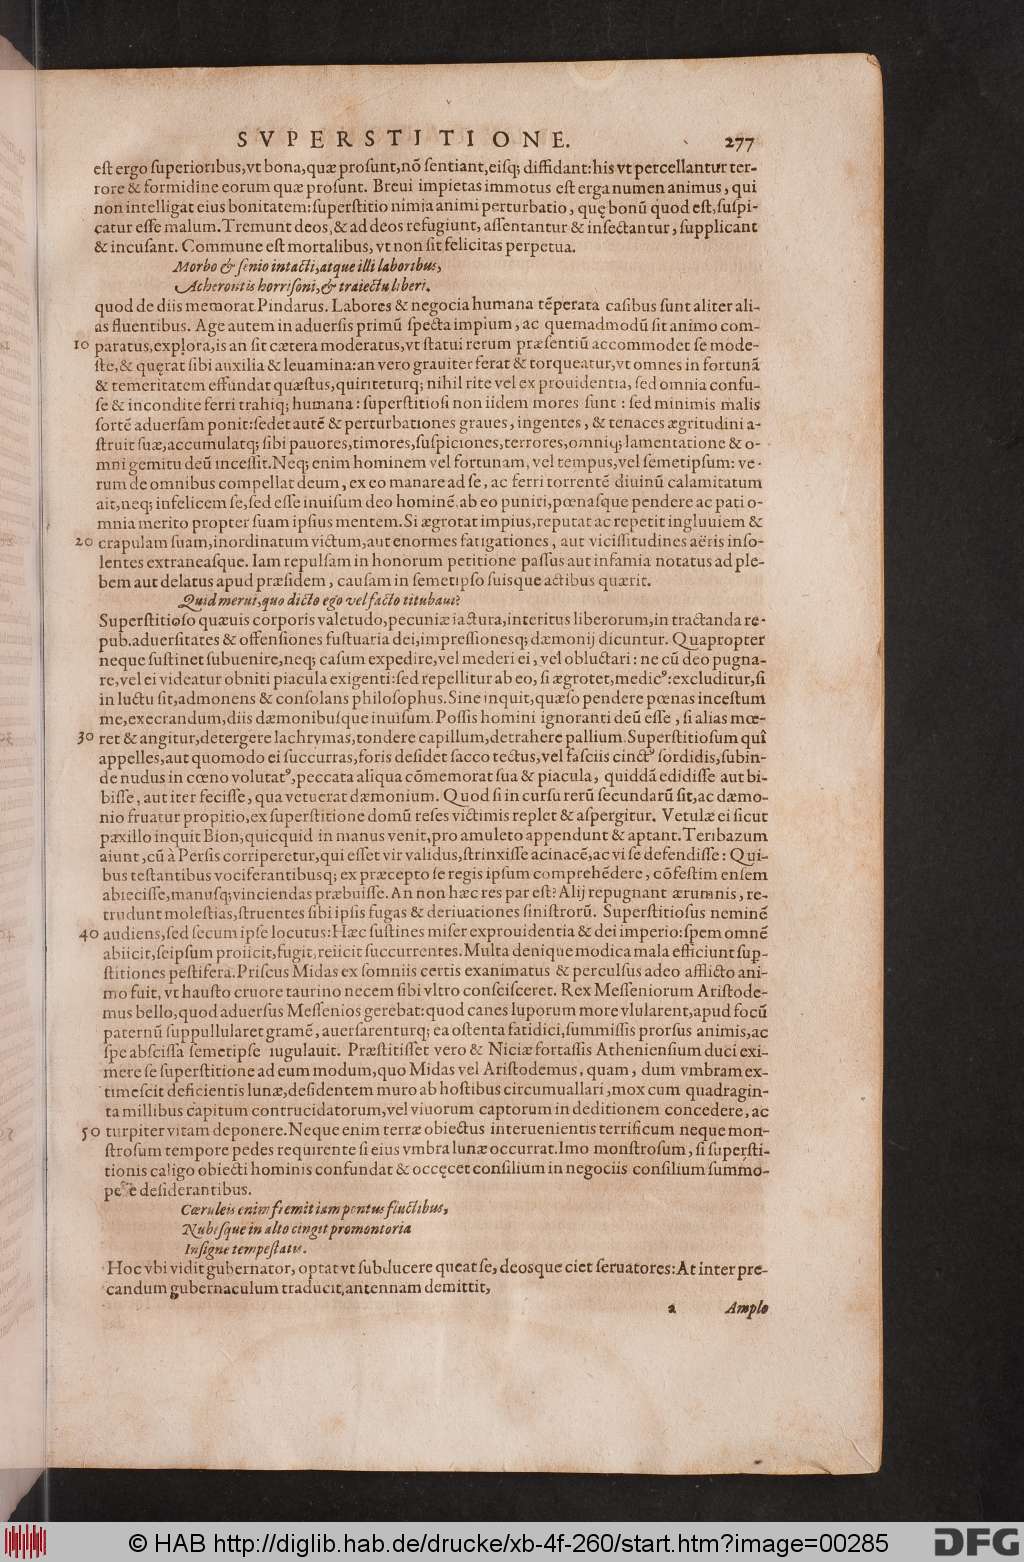 SVPERSTITIONE. 277
est ergo superioribus, vt bona, quæ prosunt, nõ sentiant, eisq; diffidant: his vt percellantur ter-
rore & formidine eorum quæ prosunt. Breui impietas immotus est erga numen animus, qui
non intelligat eius bonitatem: superstitio nimia animi perturbatio, quę bonũ quod est, suspi-
catur esse malum. Tremunt deos, & ad deos refugiunt, assentantur & insectantur, supplicant
& incusant. Commune est mortalibus, vt non sit felicitas perpetua.
Morbo & senio intacti, atque illi laboribus,
Acherontis horrisoni, & traiectu liberi.
quod de diis memorat Pindarus. Labores & negocia humana tẽperata casibus sunt aliter ali-
as fluentibus. Age autem in aduersis primũ specta impium, ac quemadmodũ sit animo com-
10 paratus, explora, is an sit cætera moderatus, vt statui rerum præsentiũ accommodet se mode-
ste, & quęrat sibi auxilia & leuamina: an vero grauiter ferat & torqueatur, vt omnes in fortunã
& temeritatem effundat quæstus, quiriteturq; nihil rite vel ex prouidentia, sed omnia confu-
se & incondite ferri trahiq; humana: superstitiosi non iidem mores sunt: sed minimis malis
sortẽ aduersam ponit: sedet autẽ & perturbationes graues, ingentes, & tenaces ægritudini a-
struit suæ, accumulatq; sibi pauores, timores, suspiciones, terrores, omniq; lamentatione & o-
mni gemitu deũ incessit. Neq; enim hominem vel fortunam, vel tempus, vel semetipsum: ve-
rum de omnibus compellat deum, ex eo manare ad se, ac ferri torrentẽ diuinũ calamitatum
ait, neq; infelicem se, sed esse inuisum deo hominẽ, ab eo puniri, pœnasque pendere ac pati o-
mnia merito propter suam ipsius mentem. Si ægrotat impius, reputat ac repetit ingluuiem &
20 crapulam suam, inordinatum victum, aut enormes fatigationes, aut vicissitudines aëris inso-
lentes extraneasque. Iam repulsam in honorum petitione passus aut infamia notatus ad ple-
bem aut delatus apud præsidem, causam in semetipso suisque actibus quærit.
Quid merui, quo dicto ego vel facto titubaui?
Superstitioso quæuis corporis valetudo, pecuniæ iactura, interitus liberorum, in tractanda re-
pub. aduersitates & offensiones fustuaria dei, impressionesq; dæmonij dicuntur. Quapropter
neque sustinet subuenire, neq; casum expedire, vel mederi ei, vel obluctari: ne cũ deo pugna-
re, vel ei videatur obniti piacula exigenti: sed repellitur ab eo, si ægrotet, medicꝰ: excluditur, si
in luctu sit, admonens & consolans philosophus. Sine inquit, quæso pendere pœnas incestum
me, execrandum, diis dæmonibusque inuisum. Possis homini ignoranti deũ esse, si alias mœ-
30 ret & angitur, detergere lachrymas, tondere capillum, detrahere pallium. Superstitiosum quî
appelles, aut quomodo ei succurras, foris desidet sacco tectus, vel fasciis cinctꝰ sordidis, subin-
de nudus in cœno volutatꝰ, peccata aliqua cõmemorat sua & piacula, quiddã edidisse aut bi-
bisse, aut iter fecisse, qua vetuerat dæmonium. Quod si in cursu rerũ secundarũ sit, ac dæmo-
nio fruatur propitio, ex superstitione domũ reses victimis replet & aspergitur. Vetulæ ei sicut
paxillo inquit Bion, quicquid in manus venit, pro amuleto appendunt & aptant. Teribazum
aiunt, cũ à Persis corriperetur, qui esset vir validus, strinxisse acinacẽ, ac vi se defendisse: Qui-
bus testantibus vociferantibusq; ex præcepto se regis ipsum comprehẽdere, cõfestim ensem
abiecisse, manusq; vinciendas præbuisse. An non hæc res par est? Alij repugnant ærumnis, re-
trudunt molestias, struentes sibi ipsis fugas & deriuationes sinistrorũ. Superstitiosus neminẽ
40 audiens, sed secum ipse locutus: Hæc sustines miser ex prouidentia & dei imperio: spem omnẽ
abiicit, seipsum proiicit, fugit, reiicit succurrentes. Multa denique modica mala efficiunt sup-
stitiones pestifera. Priscus Midas ex somniis certis exanimatus & perculsus adeo afflicto ani-
mo fuit, vt hausto cruore taurino necem sibi vltro conscisceret. Rex Messeniorum Aristode-
mus bello, quod aduersus Messenios gerebat: quod canes luporum more vlularent, apud focũ
paternũ suppullularet gramẽ, auersarenturq; ea ostenta fatidici, summissis prorsus animis, ac
spe abscissa semetipse iugulauit. Præstitisset vero & Niciæ fortassis Atheniensium duci exi-
mere se superstitione ad eum modum, quo Midas vel Aristodemus, quam, dum vmbram ex-
timescit deficientis lunæ, desidentem muro ab hostibus circumuallari, mox cum quadragin-
ta millibus capitum contrucidatorum, vel viuorum captorum in deditionem concedere, ac
50 turpiter vitam deponere. Neque enim terræ obiectus interuenientis terrificum neque mon-
strosum tempore pedes requirente si eius vmbra lunæ occurrat. Imo monstrosum, si supersti-
tionis caligo obiecti hominis confundat & occęcet consilium in negociis consilium summo-
pere desiderantibus.
Cæruleis enim fremit iam pontus fluctibus,
Nubesque in alto cingit promontoria
Insigne tempestatis.
Hoc vbi vidit gubernator, optat vt subducere queat se, deosque ciet seruatores: At inter pre-
candum gubernaculum traducit, antennam demittit,
a Amplo
© HAB http://diglib.hab.de/drucke/xb-4f-260/start.htm?image=00285
DFG